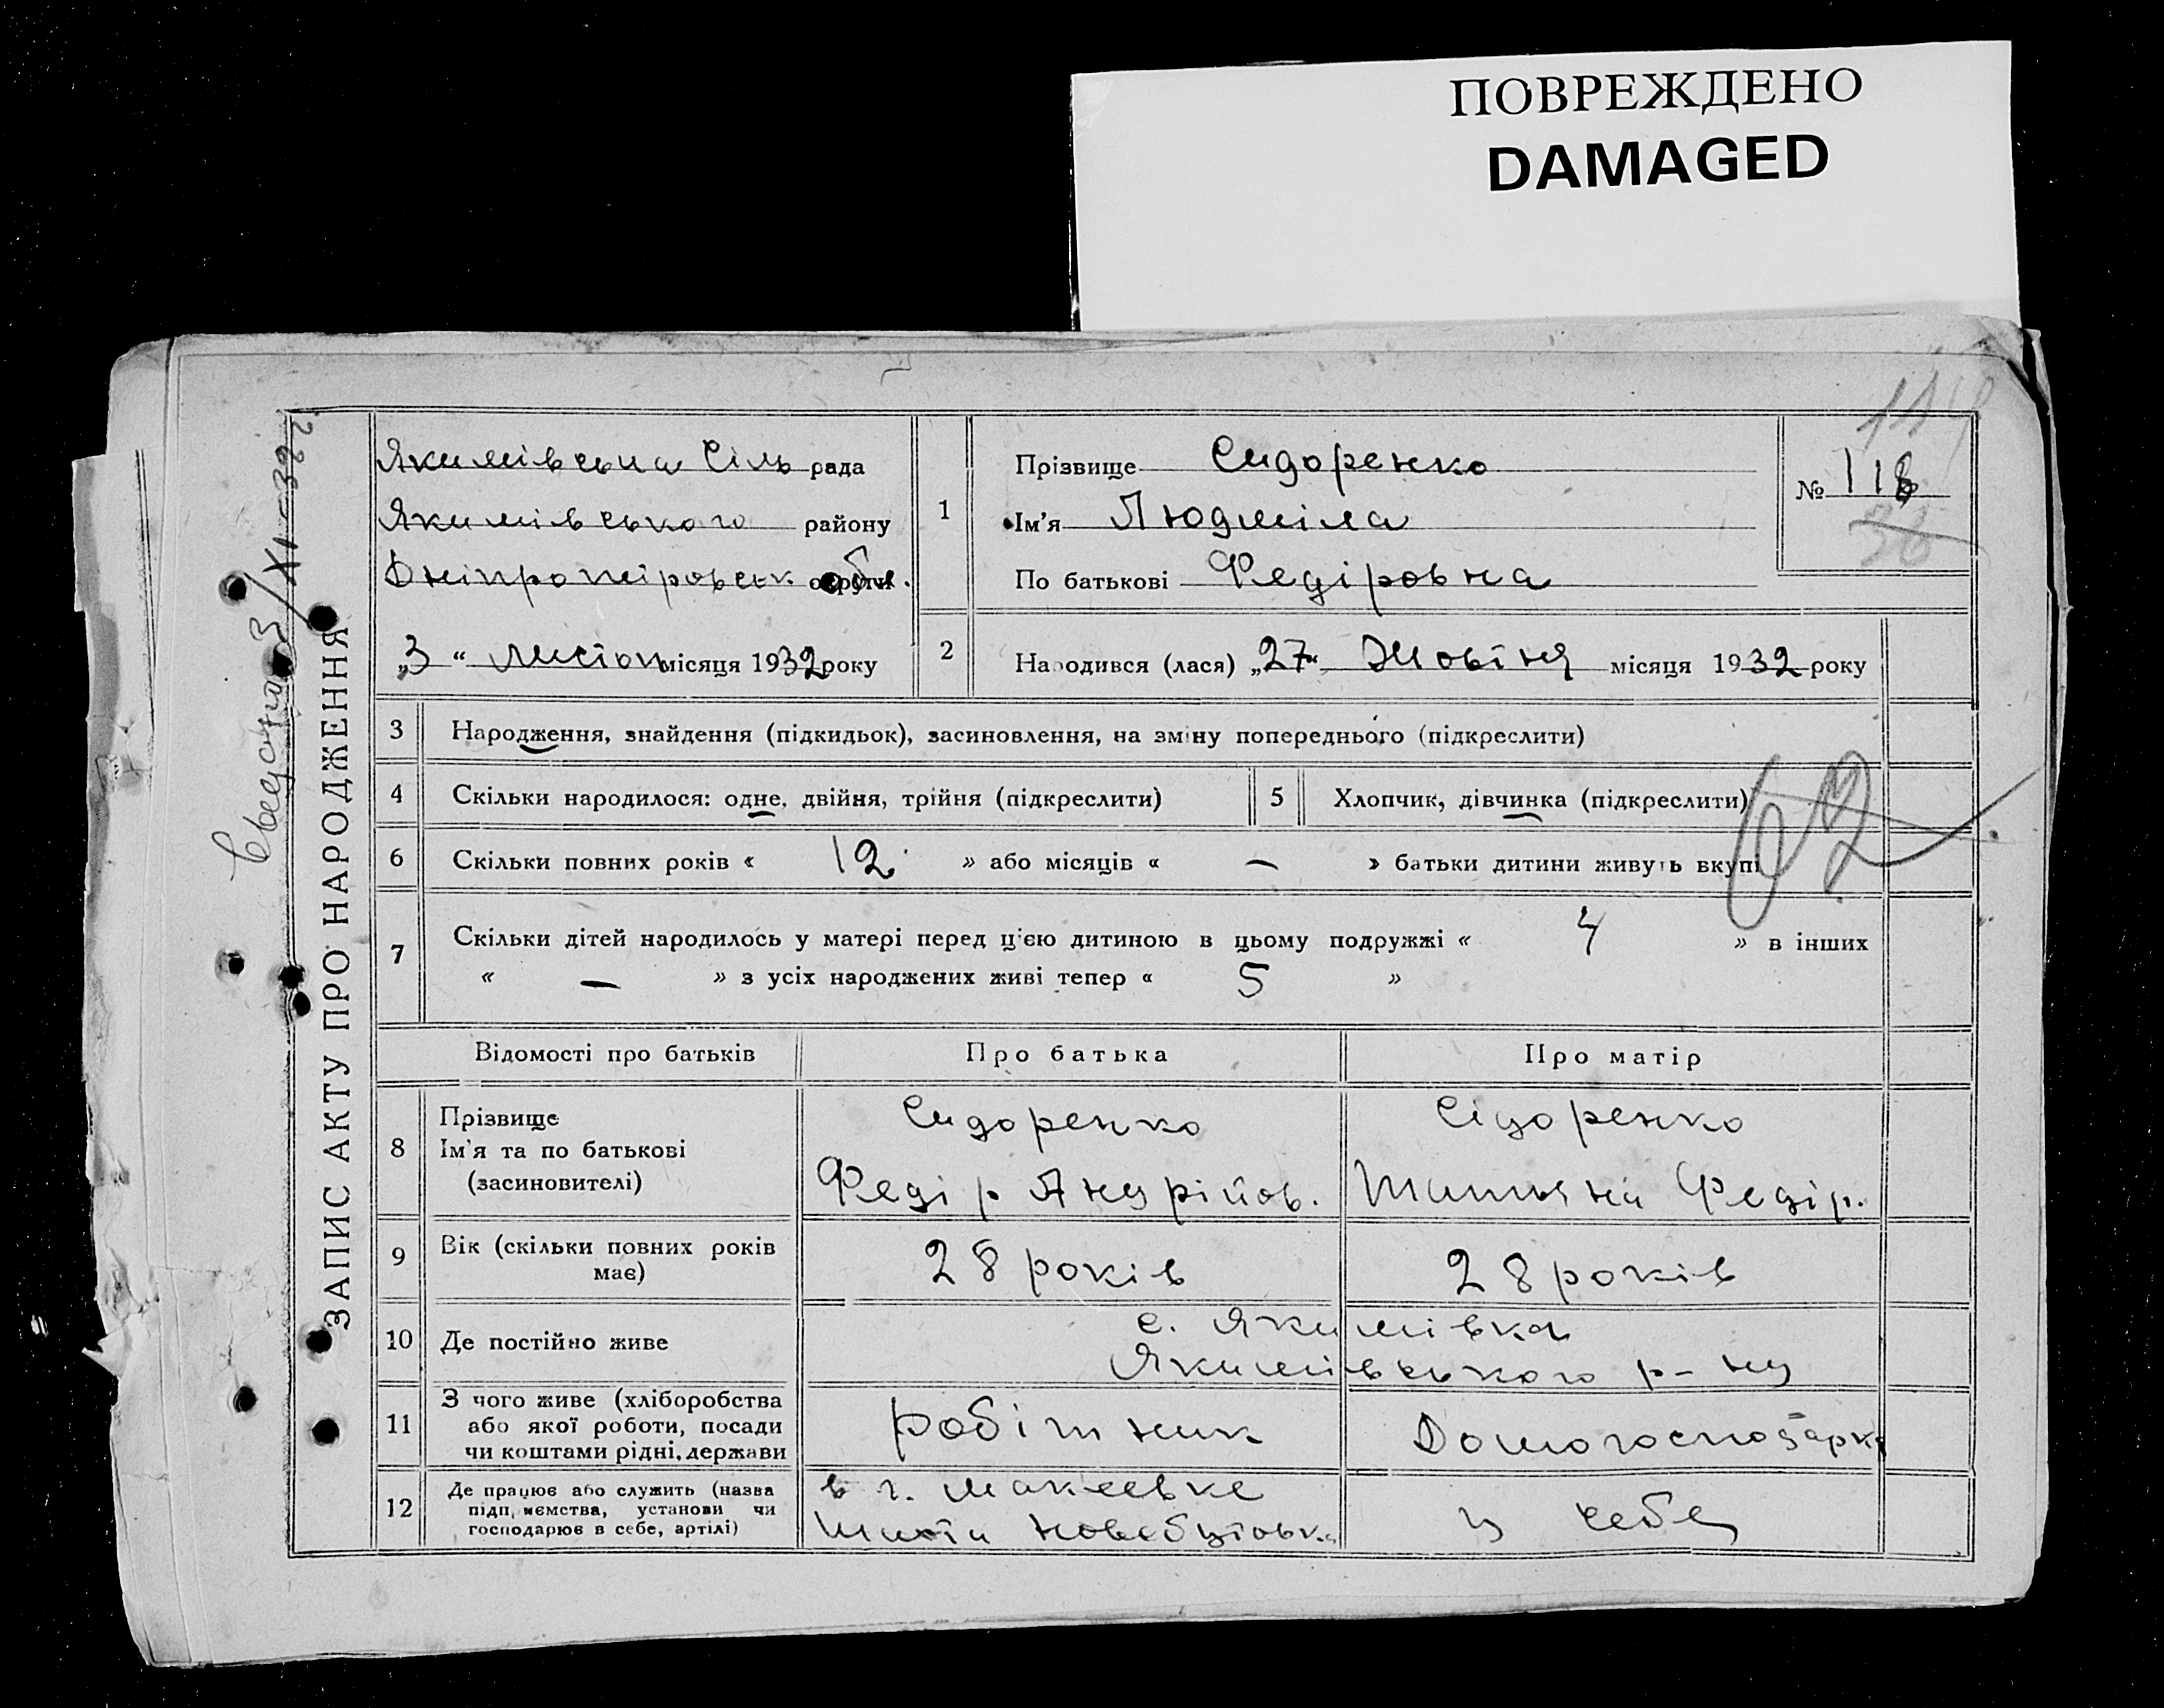 ПОВРЕЖДЕНО
DAMAGED
ЗАПИС АКТУ ПРО НАРОДЖЕННЯ
3/XI-32 г
Якимівська Сіль рада
Якимівського району
округи обл.
„3“ Листоп місяця 1932 року
1
Прізвище Сидоренко
Ім'я Людміла
По батькові Федіровна
№ 118
2
Народився (лася) „27“ Жовтня місяця 1932 року
3
Народження, знайдення (підкидьок), засиновлення, на зміну попереднього (підкреслити)
4
Скільки народилося: одне, двійня, трійня (підкреслити)
5
Хлопчик, дівчинка (підкреслити)
62
6
Скільки повних років « 12 » або місяців « — » батьки дитини живуть вкупі
7
Скільки дітей народилось у матері перед цією дитиною в цьому подружжі « 4 » в інших
« — » з усіх народжених живі тепер « 5 »
Відомості про батьків
Про батька
Про матір
8
Прізвище
Ім'я та по батькові
(засиновителі)
Сидоренко
Федір Андрійов.
Сідоренко
Татьяна Федір.
9
Вік (скільки повних років
має)
28 років
28 років
10
Де постійно живе
с. Якимівка
Якимівського р-ну
11
З чого живе (хліборобства
або якої роботи, посади
чи коштами рідні, держави
робітник
Домогосподарка
12
Де працює або служить (назва
підприємства, установи чи
господарює в себе, артілі)
в г. Макеевке
у себе